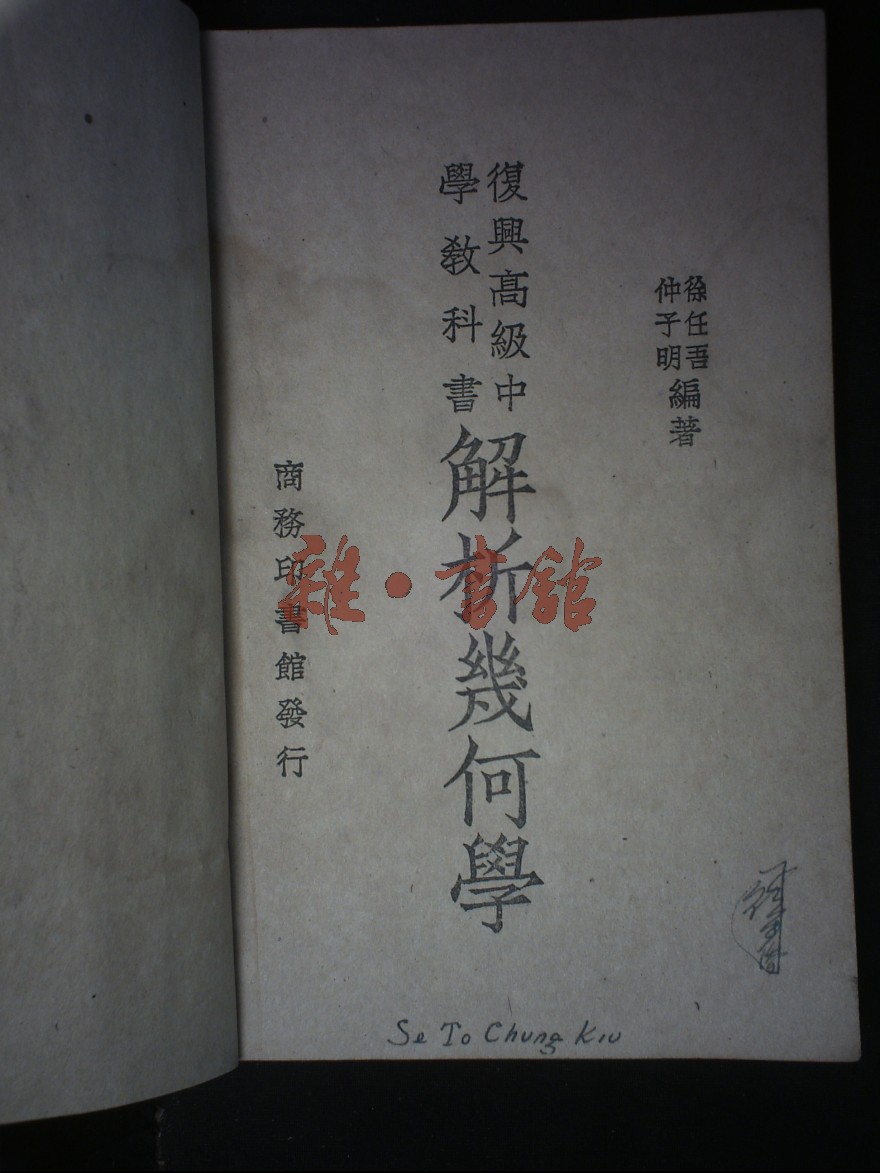 徐任吾
仲子明
編著
復興高級中
學教科書
解析幾何學
商務印書館發行
雜·書館
Se To Chung Kiu